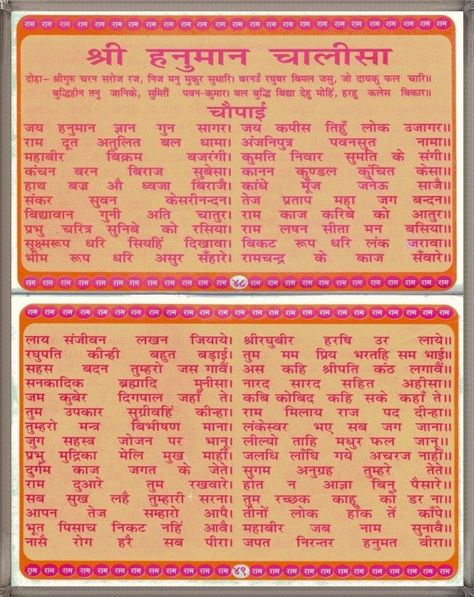 श्री हनुमान चालीसा
दोहा- श्रीगुरु चरन सरोज रज, निज मनु मुकुर सुधारि। बरनउँ रघुबर बिमल जसु, जो दायकु फल चारि।।
बुद्धिहीन तनु जानिके, सुमिरौं पवन-कुमार। बल बुद्धि बिद्या देहु मोहिं, हरहु कलेस बिकार।।
चौपाई
जय हनुमान ज्ञान गुन सागर। जय कपीस तिहुँ लोक उजागर।।
राम दूत अतुलित बल धामा। अंजनिपुत्र पवनसुत नामा।।
महाबीर बिक्रम बजरंगी। कुमति निवार सुमति के संगी।।
कंचन बरन बिराज सुबेसा। कानन कुण्डल कुंचित केसा।।
हाथ बज्र औ ध्वजा बिराजै। काँधे मूँज जनेऊ साजै।।
संकर सुवन केसरीनन्दन। तेज प्रताप महा जग बन्दन।।
बिद्यावान गुनी अति चातुर। राम काज करिबे को आतुर।।
प्रभु चरित्र सुनिबे को रसिया। राम लषन सीता मन बसिया।।
सूक्ष्मरूप धरि सियहिं दिखावा। बिकट रूप धरि लंक जरावा।।
भीम रूप धरि असुर सँहारे। रामचन्द्र के काज सँवारे।।
४८
लाय संजीवन लखन जियाये। श्रीरघुबीर हरषि उर लाये।
रघुपति कीन्ही बहुत बड़ाई। तुम मम प्रिय भरतहि सम भाई।।
सहस बदन तुम्हरो जस गावैं। अस कहि श्रीपति कंठ लगावैं।
सनकादिक ब्रह्मादि मुनीसा। नारद सारद सहित अहीसा।।
जम कुबेर दिगपाल जहाँ ते। कबि कोबिद कहि सके कहाँ ते।।
तुम उपकार सुग्रीवहिं कीन्हा। राम मिलाय राज पद दीन्हा।।
तुम्हरो मन्त्र बिभीषण माना। लंकेस्वर भए सब जग जाना।।
जुग सहस्त्र जोजन पर भानू। लील्यो ताहि मधुर फल जानू।।
प्रभु मुद्रिका मेलि मुख माहीं। जलधि लाँघि गये अचरज नाहीं।।
दुर्गम काज जगत के जेते। सुगम अनुग्रह तुम्हरे तेते।।
राम दुआरे तुम रखवारे। होत न आज्ञा बिनु पैसारे।।
सब सुख लहै तुम्हारी सरना। तुम रच्छक काहू को डर ना।।
आपन तेज सम्हारो आपै। तीनों लोक हाँक तें काँपे।
भूत पिसाच निकट नहिं आवै। महाबीर जब नाम सुनावै।
नासै रोग हरै सब पीरा। जपत निरन्तर हनुमत बीरा।।
४९